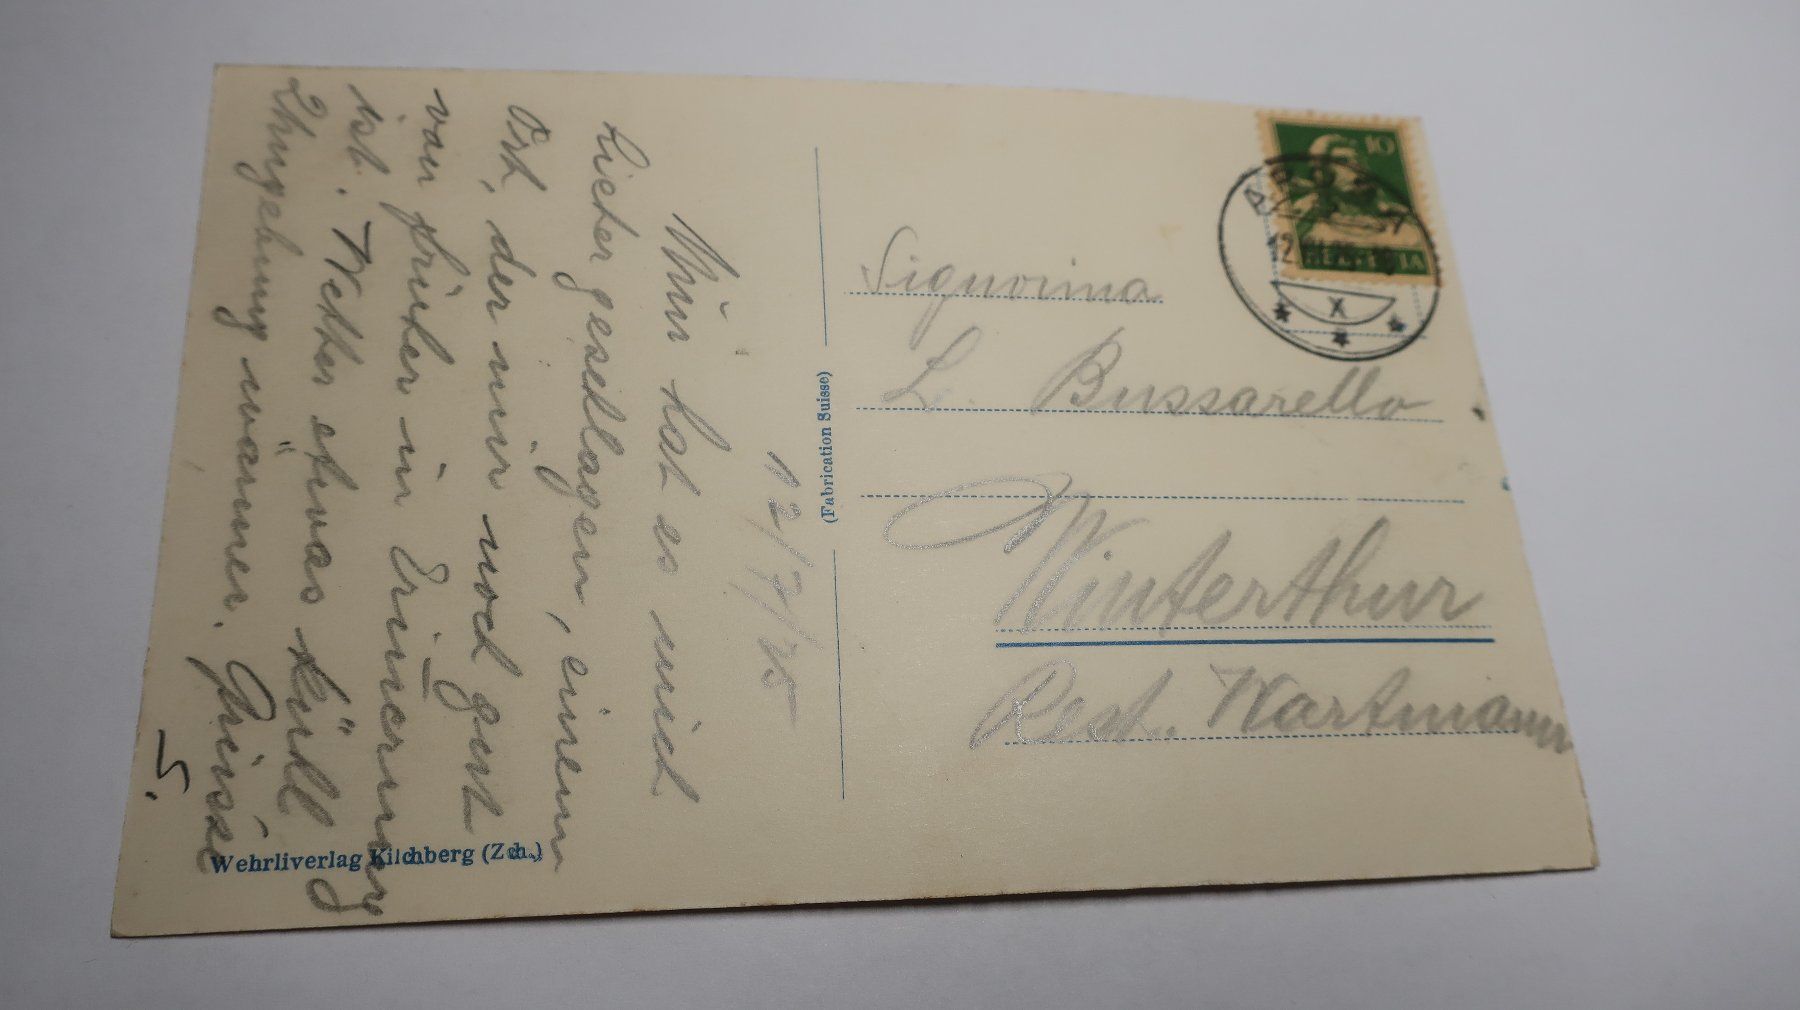 12/7/25
Nun hat es mich
hieher geschlagen, einem
Ort, der mir noch gut
von früher in Erinnerung
ist. Wetter etwas kühl
Umgebung wärmer. Grüsse
S.
Wehrliverlag Kilchberg (Zch.)
(Fabrication Suisse)
10
HELVETIA
X
Signorina
L. Bussarello
Winterthur
Rest. Wartmann